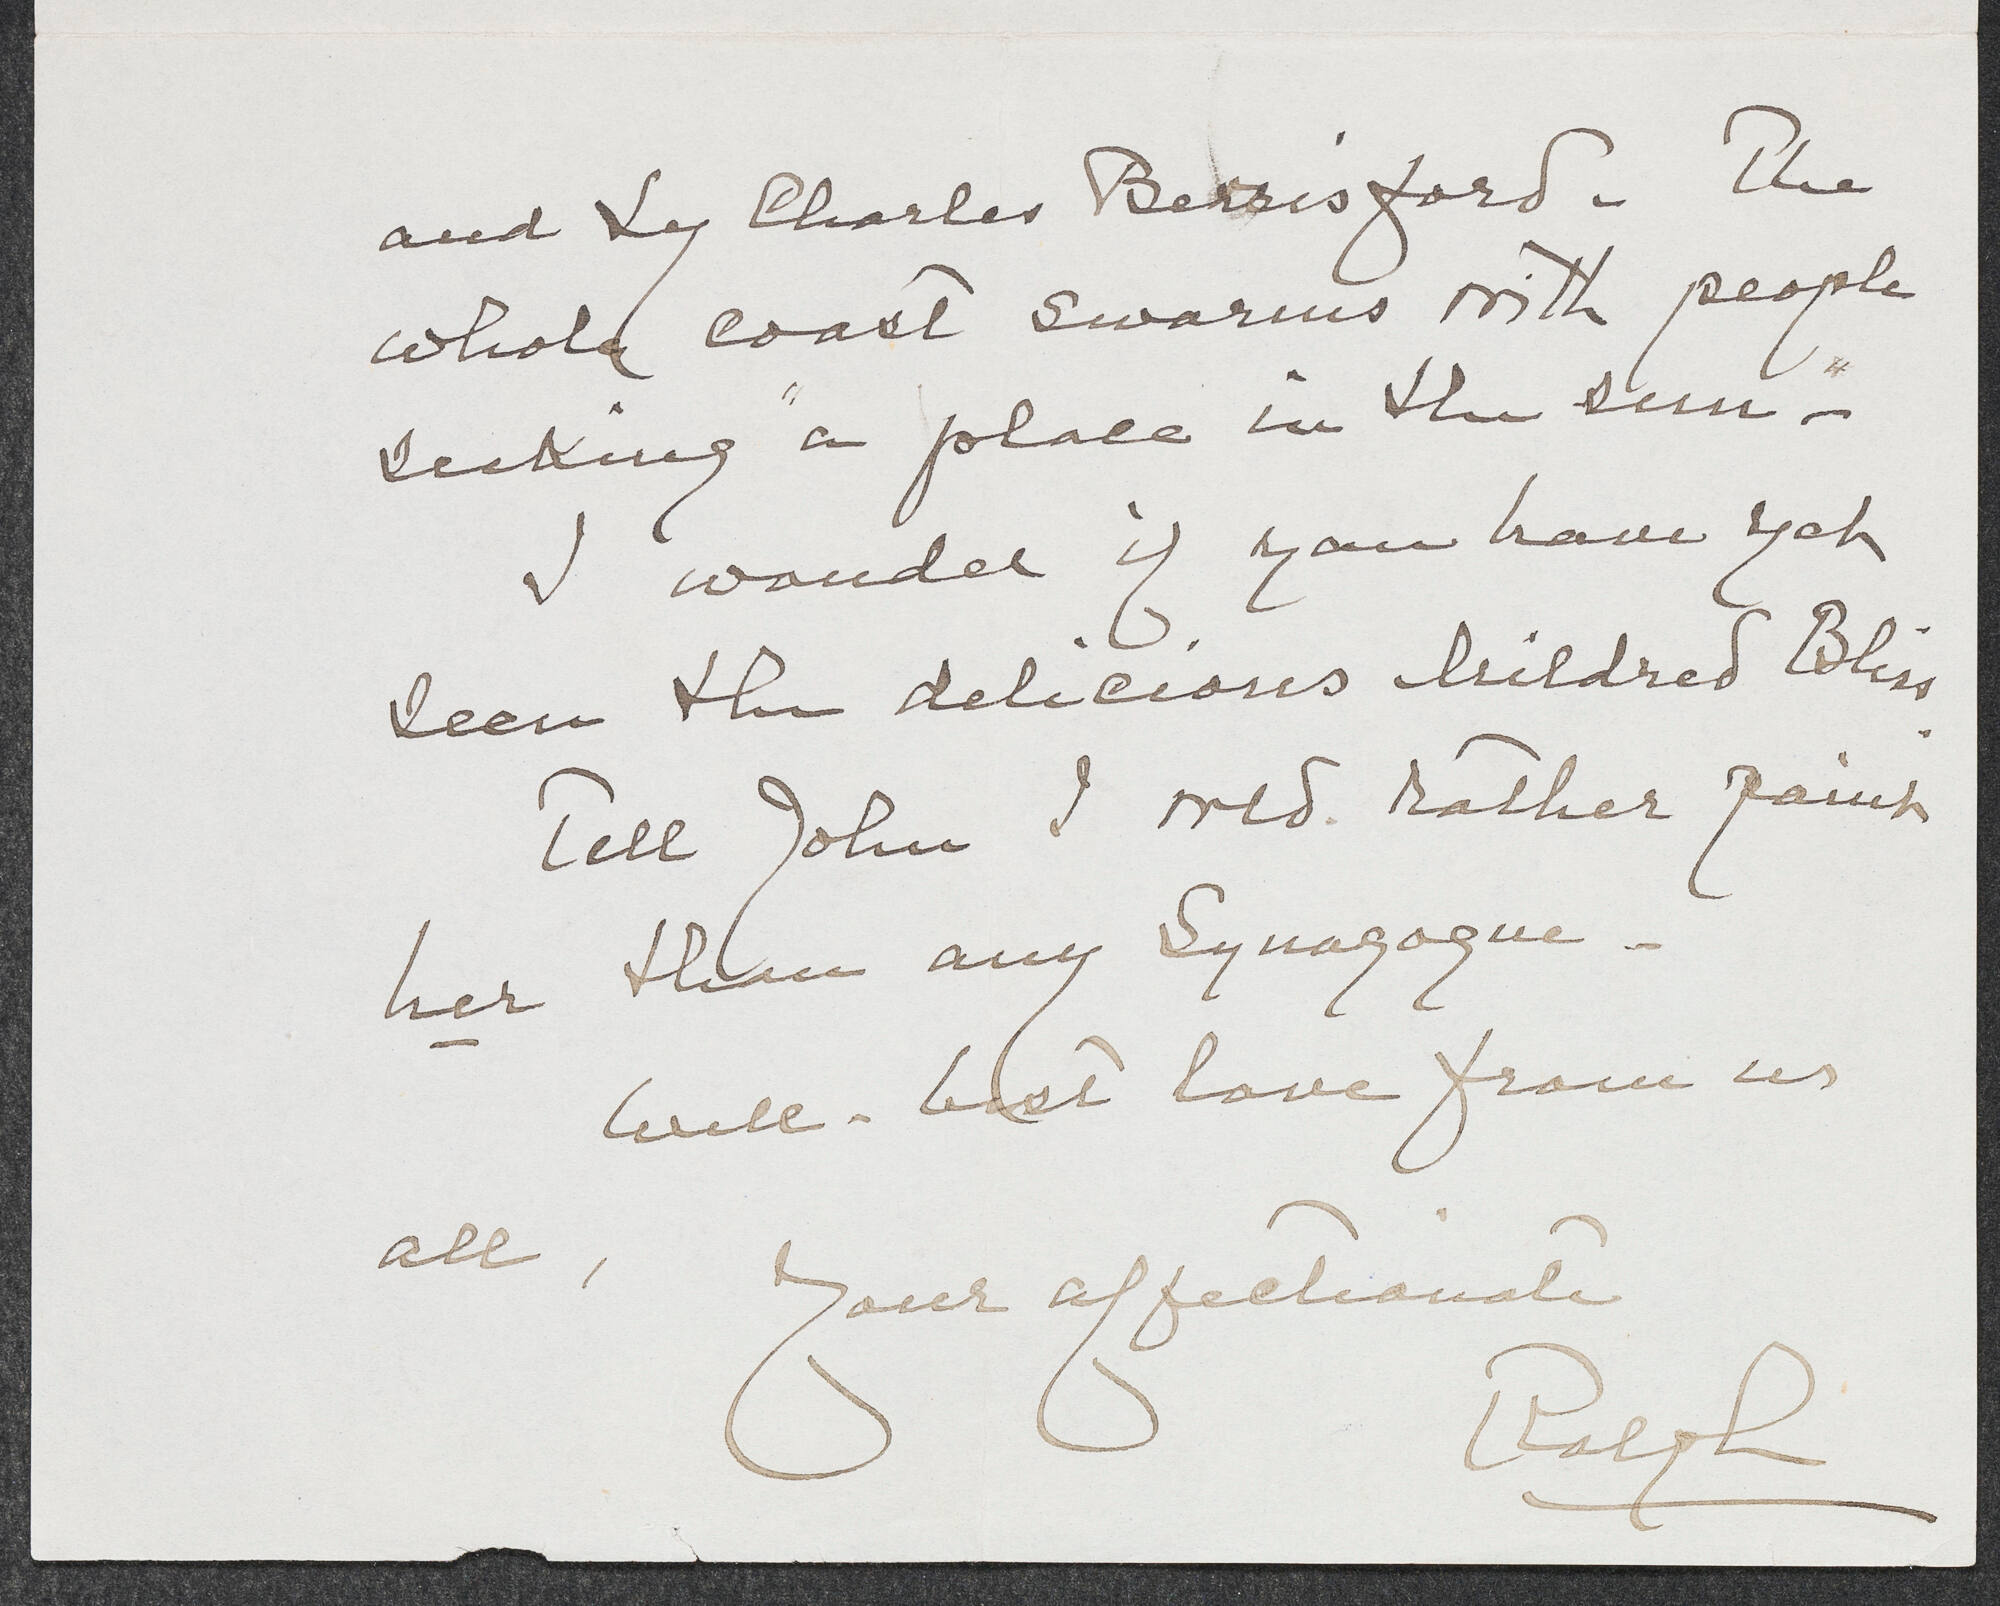 and Ly Charles Berrisford - The
whole coast swarms with people
seeking "a place in the sun -"
I wonder if you have yet
seen the delicious Mildred Bliss.
Tell John I wld. rather paint
her than any Synagogue -
Well - best love from us
all, Your affectionate
Ralph